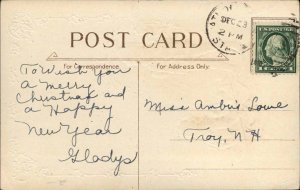 POST CARD
For Correspondence.
For Address Only.
DEC 23
2 PM
To Wish You
a Merry
Christmas and
a Happy
New Year
Gladys
Miss Lowe
Troy, N H